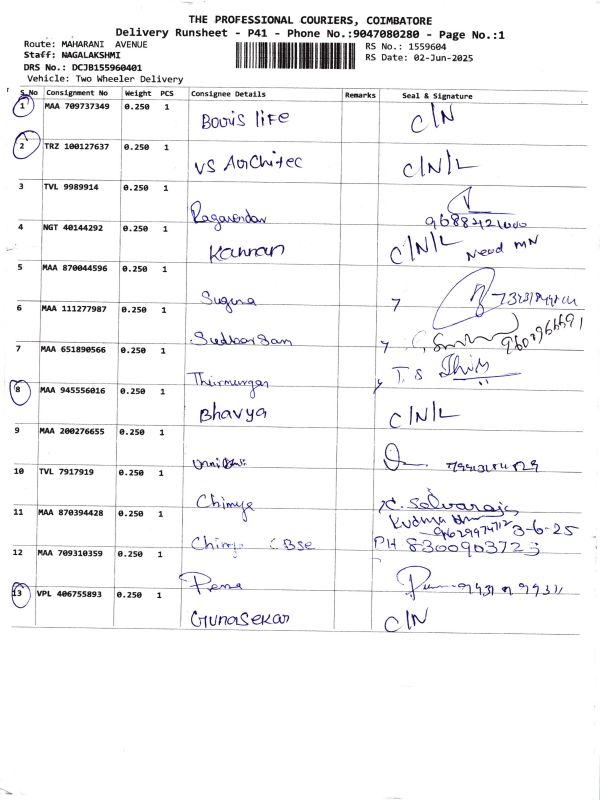 THE PROFESSIONAL COURIERS, COIMBATORE
Delivery Runsheet - P41 - Phone No.:9047080280 - Page No.:1
Route: MAHARANI AVENUE
RS No.: 1559604
Staff: NAGALAKSHMI
RS Date: 02-Jun-2025
DRS No.: DCJB155960401
Vehicle: Two Wheeler Delivery
S_No Consignment No Weight PCS Consignee Details Remarks Seal & Signature
1 MAA 709737349 0.250 1
Bovis life C/N
2 TRZ 100127637 0.250 1
VS Architec C/N/L
3 TVL 9989914 0.250 1
Ragavendar
4 NGT 40144292 0.250 1
Kannan C/N/L Need MN
5 MAA 870044596 0.250 1
Suguna
6 MAA 111277987 0.250 1
Sudharsan
7 MAA 651890566 0.250 1
Thirmurgan T.S
8 MAA 945556016 0.250 1
Bhavya C/N/L
9 MAA 200276655 0.250 1
10 TVL 7917919 0.250 1
Chimye K. Selvaraj
11 MAA 870394428 0.250 1
3-6-25
CBSE PH 8300903723
12 MAA 709310359 0.250 1
Pema
13 VPL 406755893 0.250 1
Gunasekar C/N